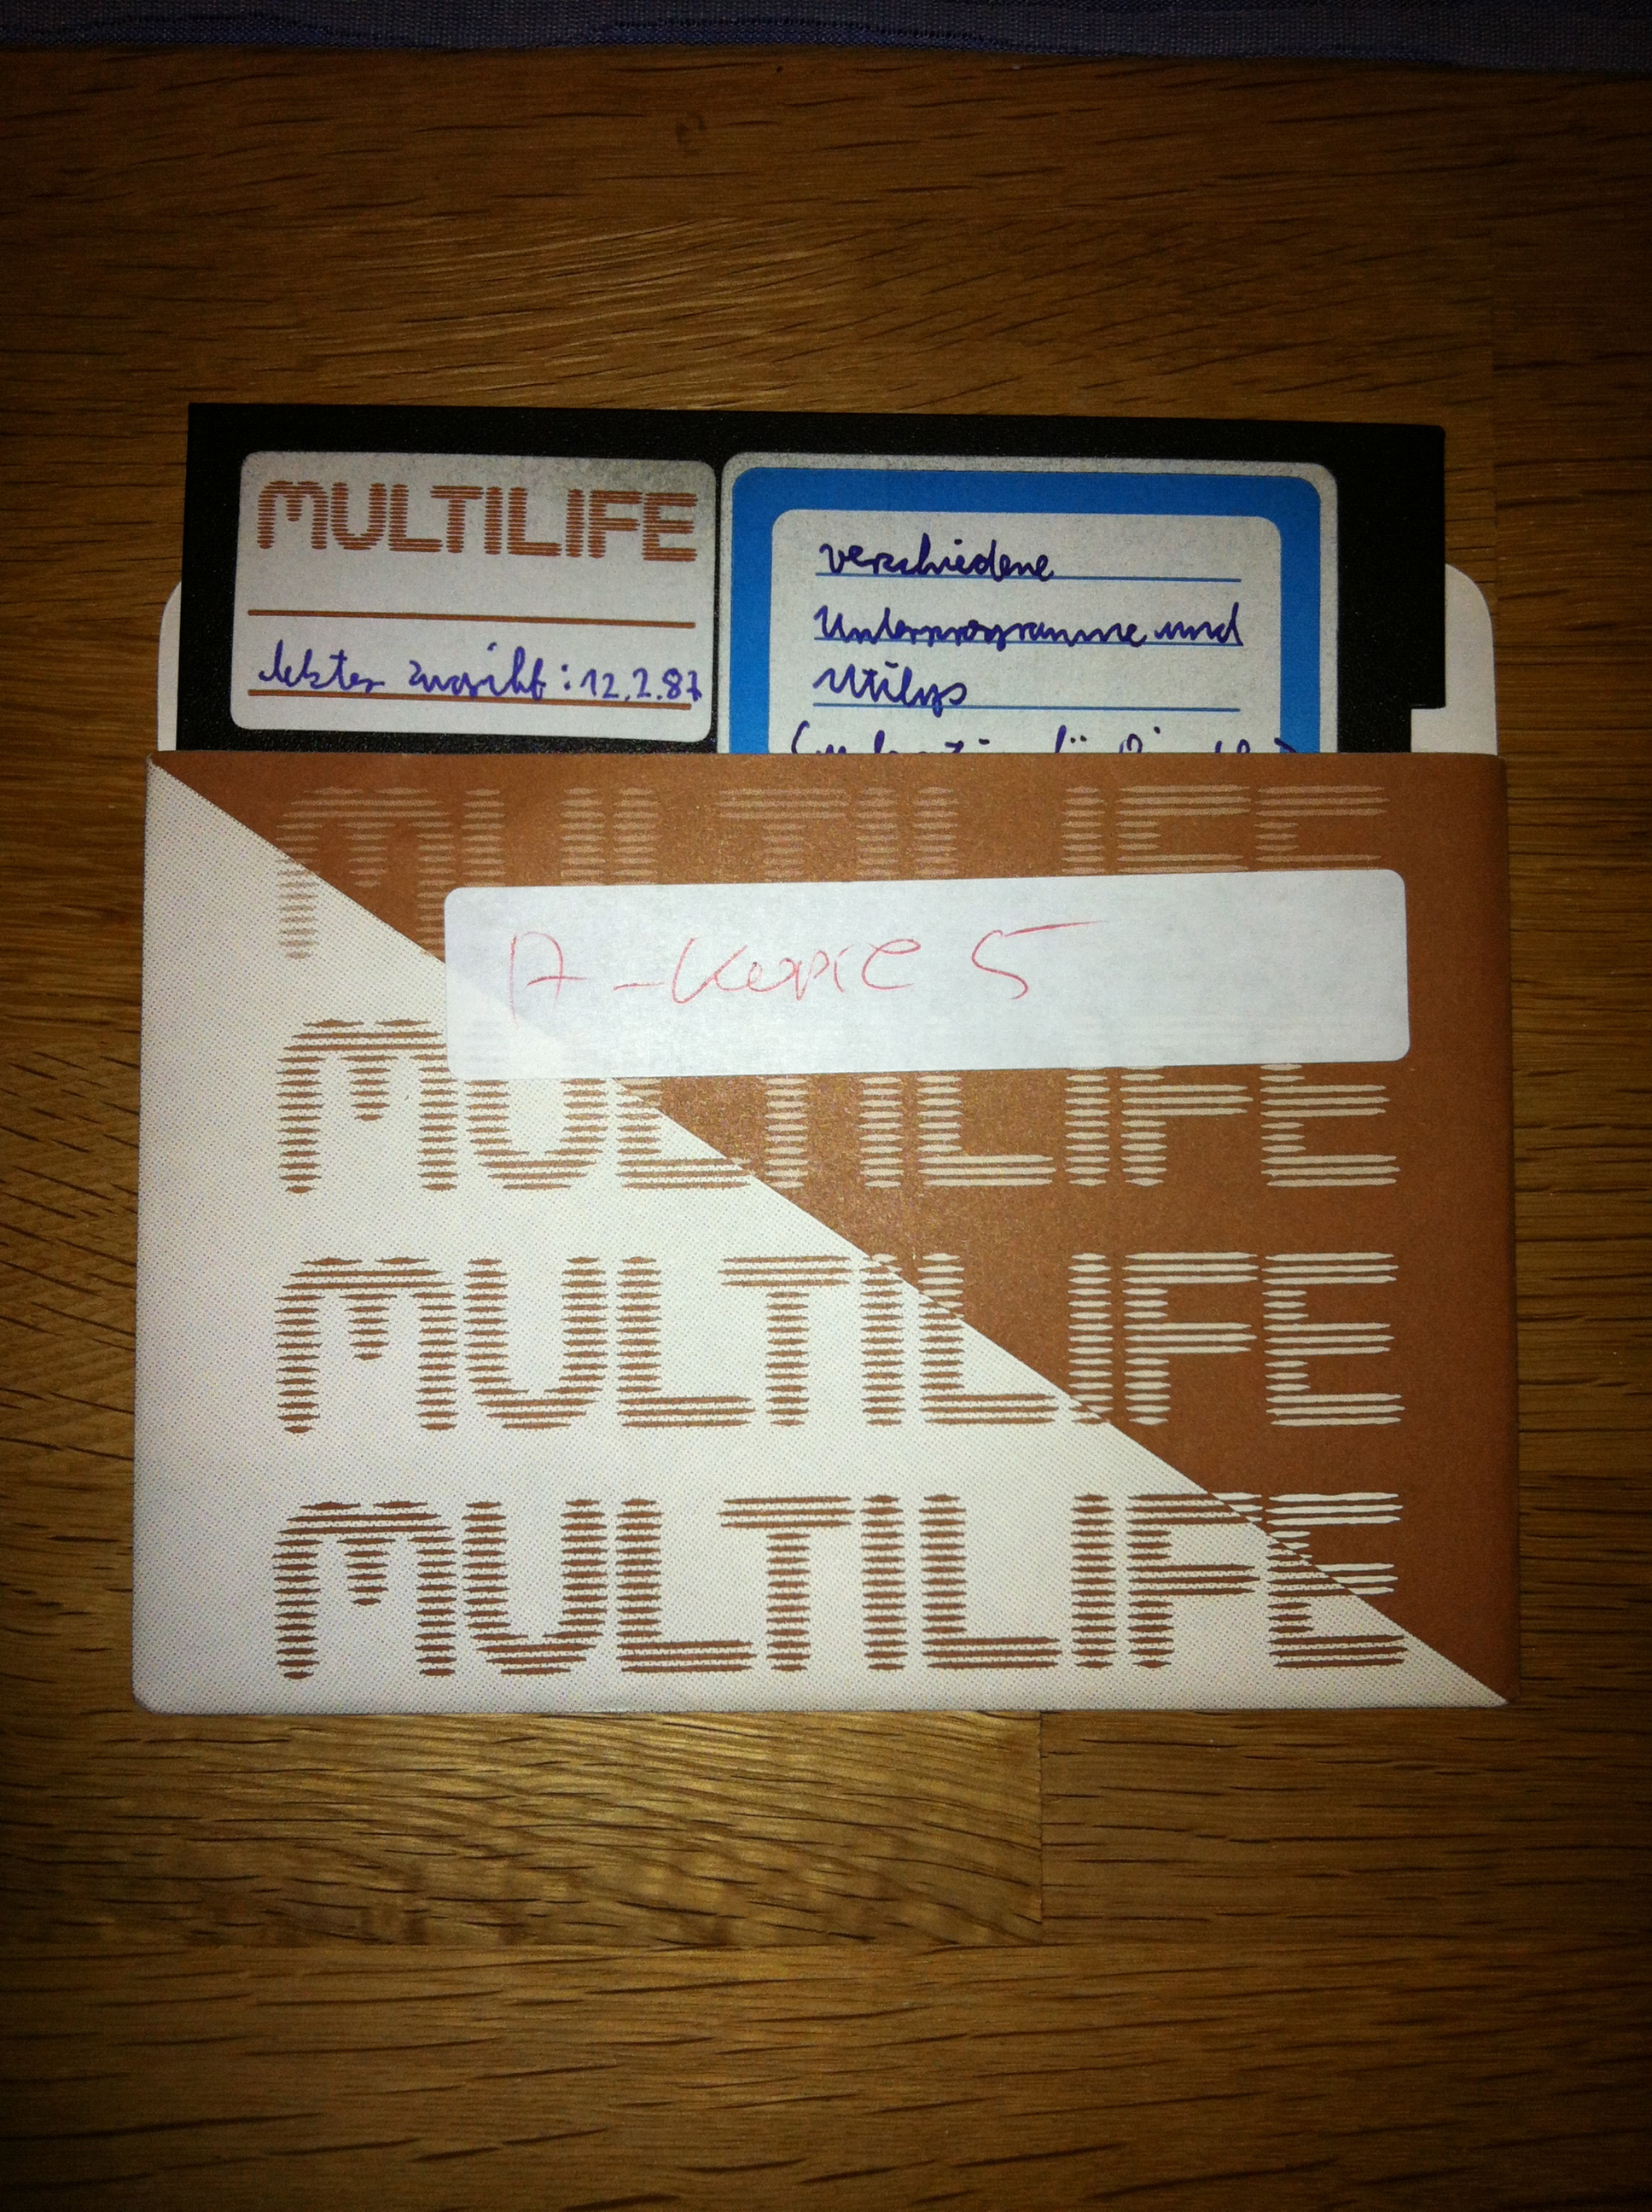 MULTILIFE
letzter Zugriff: 12.2.87
verschiedene
Unterprogramme und
Utilys
MULTILIFE
A-Kopie 5
MULTILIFE
MULTILIFE
MULTILIFE